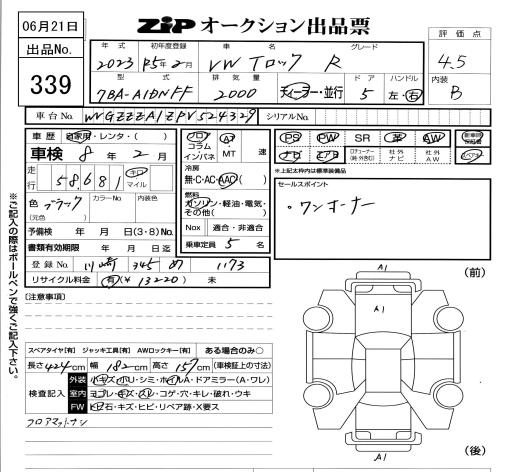 06月21日
出品No.
339
ZIP オークション出品票
評価点
4.5
内装
B
年式 初年度登録 車名 グレード
2023 R5年2月 VW Tロック R
型式 排気量 ドア ハンドル
7BA-A1DNFF 2000 ディーラー・並行 5 左・右
車台No. WVGZZZA1ZPV524329 シリアルNo.
車歴 自家用・レンタ・( )
車検 8年2月
走行 58,681 キロ マイル
色 ブラック カラーNo. 内装色
(元色)
予備検 年 月 日(3・8)No.
書類有効期限 年 月 日迄
登録No. 川崎 345 め 1173
リサイクル料金 有(¥13220) 未
フロア コラム インパネ
AT・MT 速
冷房
無・C・AC・AAC
燃料
ガソリン・軽油・電気・その他( )
Nox 適合・非適合
乗車定員 5 名
PS PW SR 革 AW 新車時保証書
ナビ エアB 社外ナビ 社外AW
※上記太枠内は標準装備品
セールスポイント
・ワンオーナー
※ご記入の際はボールペンで強くご記入下さい。
(注意事項)
スペアタイヤ[有] ジャッキ工具[有] AWロックキー[有] ある場合のみ〇
長さ424cm 幅182cm 高さ157cm (車検証上の寸法)
検査記入
外装 キズ・ホリ・シミ・ホイルA・ドアミラー(A・ワレ)
室内 ヨゴレ・キズ・スレ・コゲ・穴・キレ・破れ・ウキ
FW 飛石・キズ・ヒビ・リペア跡・X要ス
フロアマットナシ
(前)
A1
A1
A1
(後)